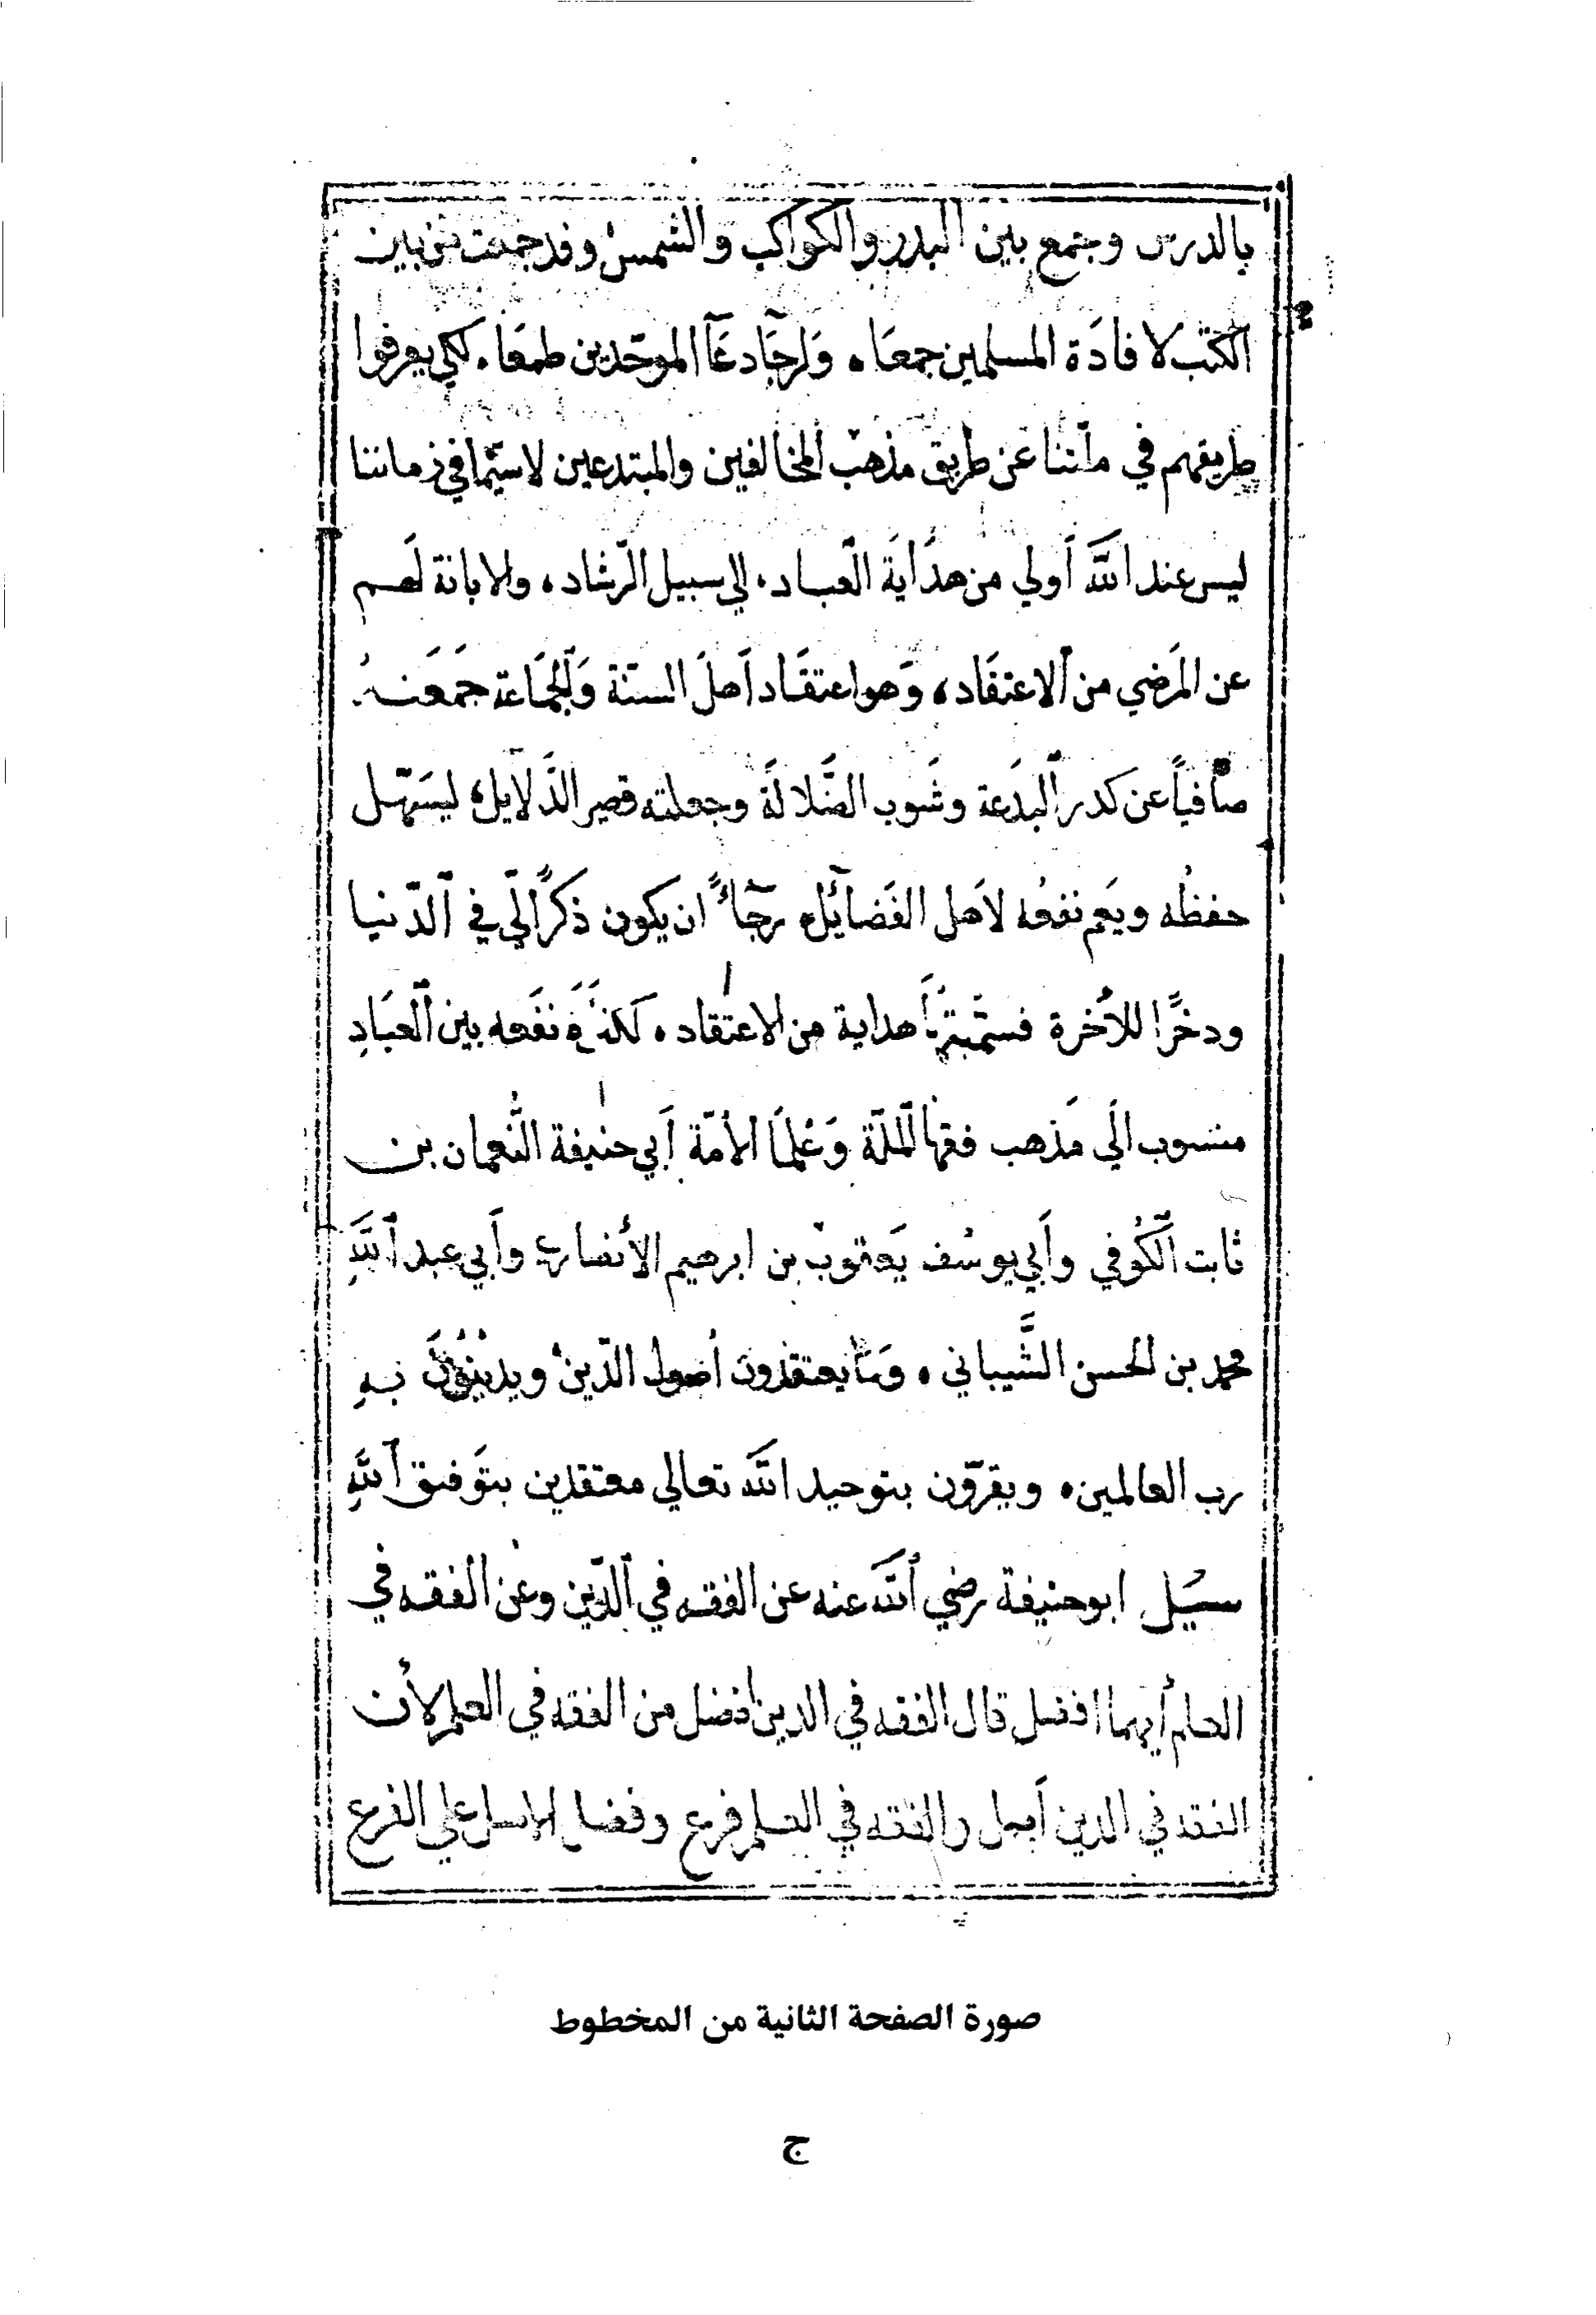 بالدرس وجمع بين البدر والكواكب والشمس وقد جمعت من بين
الكتب لافادَة المسلمين جمعَا، وَلرجَآدعَآ الموحّدين طمعَا، لكي يعرفوا
طريقهم في ملّتنا عن طريق مذهب المخالفين والمبتدعين لاسيّما في زماننا
ليس عند الله أولي من هدَايَة العباد، الي سبيل الرّشاد، والابانة لَهم
عن المَرضي من الاعتقَاد، وَهو اعتقَاد اَهلَ السنّة وَالجَمَاعة جَمَعَتهُ
صَافياً عن كدر البدَعة وشَوب الضَّلالَة وجعلته قصير الدَّلايل، ليسَهّل
حفظُه ويَعم نفعُه لاَهل الفَضآئل، رجَآءً ان يكون ذكرًا لّي في الدّنيا
ودخرًا للآخرة فسمّيتهَا هداية من الاعتقاد، لكثرَة نفَعه بين العبَادِ
منسوب الَي مَذهب فقهَا الملّة وَعُلمَا الأمّة أَبي حنيفة النُّعمان بن
ثابت الكُوفي وأَبي يوسُف يَعقوبْ بن ابرهيم الأنصاري وأَبي عبد اللَّهِ
محمد بن الحسن الشَّيباني، وَمَا يعتقدون أصول الدّين ويدينُونَ بهِ
رب العالمين، ويقرّون بتوحيد الله تعالي معتقدين بتَوفيق اللهِ
سيُل ابو حنيفة رضي اللَه عنه عن الفقه في الدّين وعن الفقه في
العلم أيهما افضل قال الفقه في الدين افضل من الفقه في العلم لأن
الفقه في الدين أصل والفقه في العلم فرع وفضل الاصل علي الفرع
صورة الصفحة الثانية من المخطوط
ج